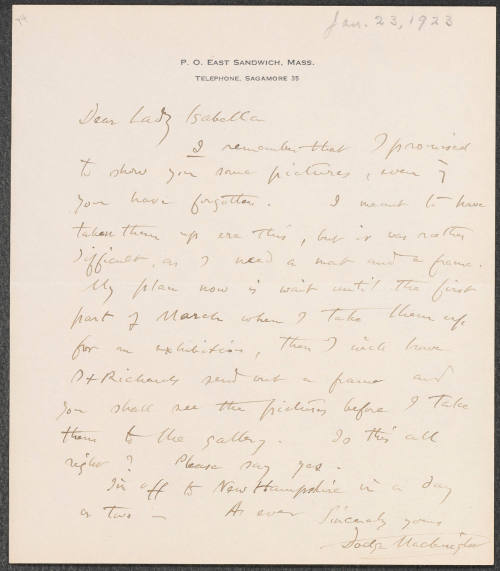 Jan. 23, 1923
P. O. East Sandwich, Mass.
Telephone, Sagamore 35
Dear Lady Isabella
I remember that I promised
to show you some pictures, even if
you have forgotten. I meant to have
taken them up ere this, but it was rather
difficult, as I need a mat and a frame.
My plan now is wait until the first
part of March when I take them up
for an exhibition, then I will have
D + Richards send out a frame and
you shall see the pictures before I take
them to the gallery. Is this all
right? Please say yes.
I'm off to New Hampshire in a day
or two — As ever
Sincerely yours
Dodge Macknight